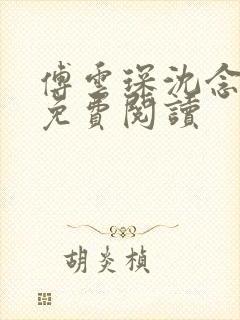 傅雲琛沈念
免費閱讀
胡炎楨